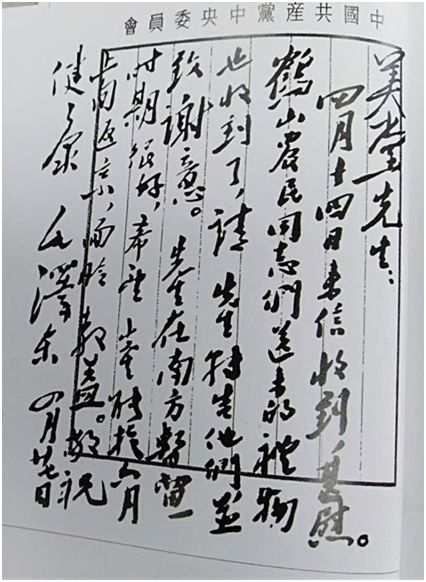 中國共產黨中央委員會
美堂先生：
四月十四日來信收到，甚慰。
鶴山農民同志們送來的禮物
也收到了，請先生轉告他們，並
致謝意。先生在南方暫留一
時期很好，希望先生能於六月
上旬返京，面聆教益。敬祝
健康 毛澤東 四月廿七日